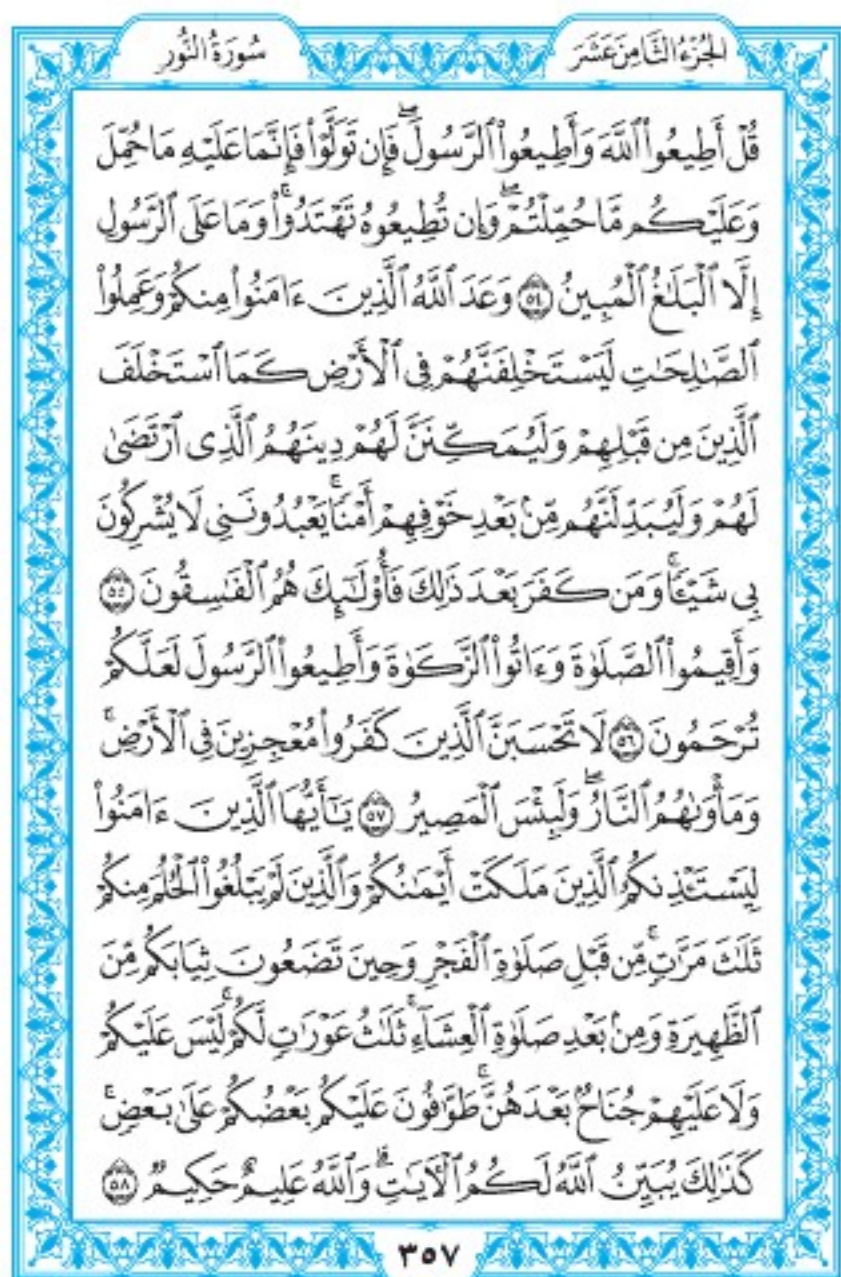 الجُزْءُ الثَّامِنَ عَشَرَ
سُورَةُ النُّورِ
قُلْ أَطِيعُوا۟ ٱللَّهَ وَأَطِيعُوا۟ ٱلرَّسُولَۖ فَإِن تَوَلَّوْا۟ فَإِنَّمَا عَلَيْهِ مَا حُمِّلَ
وَعَلَيْكُم مَّا حُمِّلْتُمْۖ وَإِن تُطِيعُوهُ تَهْتَدُوا۟ۚ وَمَا عَلَى ٱلرَّسُولِ
إِلَّا ٱلْبَلَٰغُ ٱلْمُبِينُ ۝٥٤ وَعَدَ ٱللَّهُ ٱلَّذِينَ ءَامَنُوا۟ مِنكُمْ وَعَمِلُوا۟
ٱلصَّٰلِحَٰتِ لَيَسْتَخْلِفَنَّهُمْ فِى ٱلْأَرْضِ كَمَا ٱسْتَخْلَفَ
ٱلَّذِينَ مِن قَبْلِهِمْ وَلَيُمَكِّنَنَّ لَهُمْ دِينَهُمُ ٱلَّذِى ٱرْتَضَىٰ
لَهُمْ وَلَيُبَدِّلَنَّهُم مِّنۢ بَعْدِ خَوْفِهِمْ أَمْنًاۚ يَعْبُدُونَنِى لَا يُشْرِكُونَ
بِى شَيْـًٔاۚ وَمَن كَفَرَ بَعْدَ ذَٰلِكَ فَأُو۟لَٰٓئِكَ هُمُ ٱلْفَٰسِقُونَ ۝٥٥
وَأَقِيمُوا۟ ٱلصَّلَوٰةَ وَءَاتُوا۟ ٱلزَّكَوٰةَ وَأَطِيعُوا۟ ٱلرَّسُولَ لَعَلَّكُمْ
تُرْحَمُونَ ۝٥٦ لَا تَحْسَبَنَّ ٱلَّذِينَ كَفَرُوا۟ مُعْجِزِينَ فِى ٱلْأَرْضِۚ
وَمَأْوَىٰهُمُ ٱلنَّارُۖ وَلَبِئْسَ ٱلْمَصِيرُ ۝٥٧ يَٰٓأَيُّهَا ٱلَّذِينَ ءَامَنُوا۟
لِيَسْتَـْٔذِنكُمُ ٱلَّذِينَ مَلَكَتْ أَيْمَٰنُكُمْ وَٱلَّذِينَ لَمْ يَبْلُغُوا۟ ٱلْحُلُمَ مِنكُمْ
ثَلَٰثَ مَرَّٰتٍۚ مِّن قَبْلِ صَلَوٰةِ ٱلْفَجْرِ وَحِينَ تَضَعُونَ ثِيَابَكُم مِّنَ
ٱلظَّهِيرَةِ وَمِنۢ بَعْدِ صَلَوٰةِ ٱلْعِشَآءِۚ ثَلَٰثُ عَوْرَٰتٍ لَّكُمْۚ لَيْسَ عَلَيْكُمْ
وَلَا عَلَيْهِمْ جُنَاحٌۢ بَعْدَهُنَّۚ طَوَّٰفُونَ عَلَيْكُم بَعْضُكُمْ عَلَىٰ بَعْضٍۚ
كَذَٰلِكَ يُبَيِّنُ ٱللَّهُ لَكُمُ ٱلْـَٔايَٰتِۗ وَٱللَّهُ عَلِيمٌ حَكِيمٌ ۝٥٨
٣٥٧